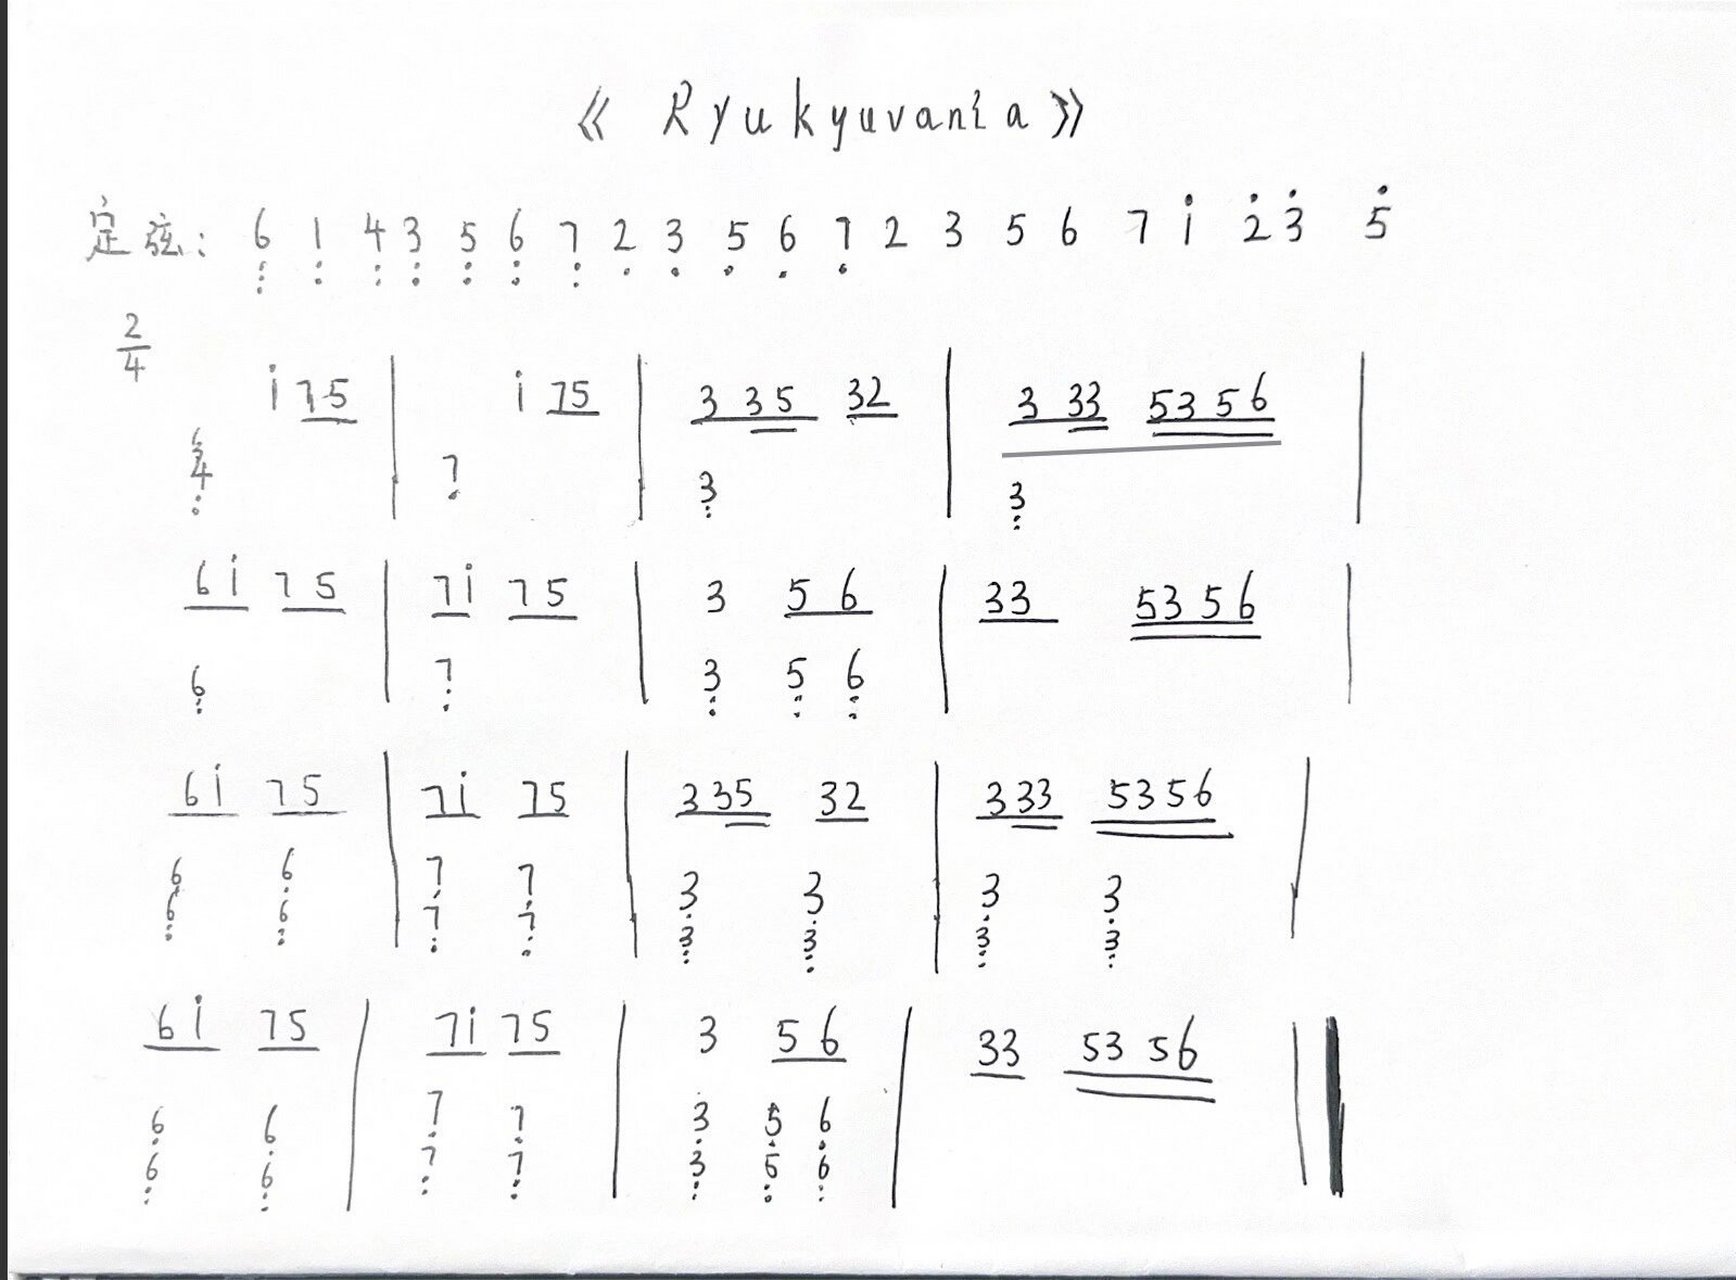 《 Ryukyuvania 》
定弦: 6̣ 1̣ 4̣ 3̣ 5̣ 6̣ 7̣ 2̣ 3̣ 5̣ 6̣ 7̣ 2 3 5 6 7 i 2̇ 3̇ 5̇
2/4
i 75 | i 75 | 3 35 32 | 3 33 53 56 |
6 4 7 3 3
6i 75 | 7i 75 | 3 56 | 33 53 56 |
6 7 3 5 6
6i 75 | 7i 75 | 335 32 | 333 5356 |
6 6 7 7 3 3 3 3
6 6 7 7 3 3 3 3
6i 75 | 7i 75 | 3 56 | 33 53 56 ||
6 6 7 7 3 5 6
6 6 7 7 3 5 6